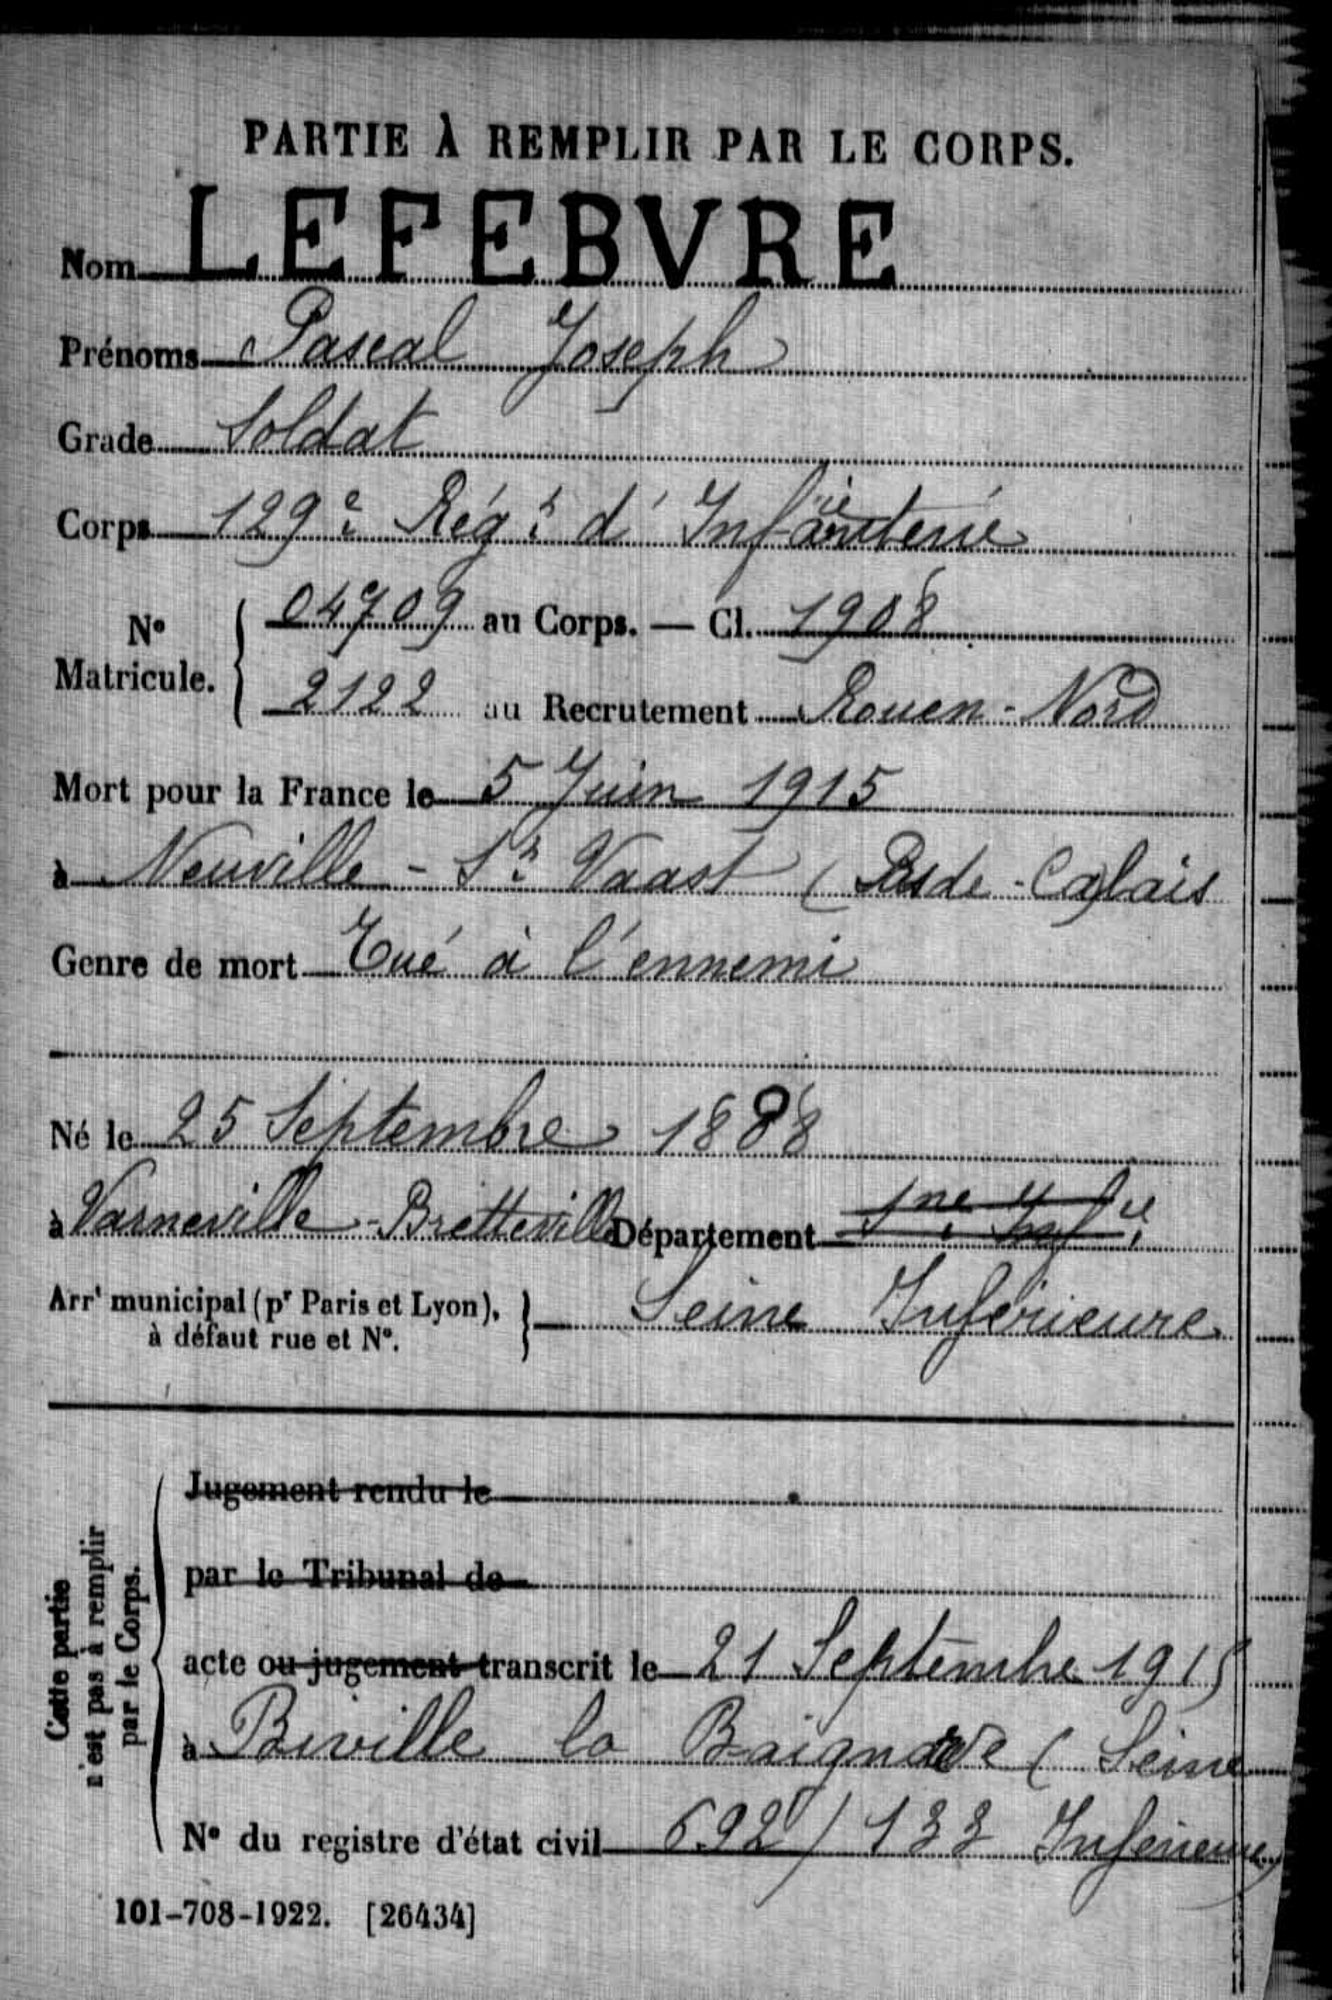 PARTIE À REMPLIR PAR LE CORPS.
Nom LEFEBVRE
Prénoms Pascal Joseph
Grade Soldat
Corps 129e Régt d'Infanterie
No Matricule. { 04709 au Corps. — Cl. 1908
2122 au Recrutement Rouen-Nord
Mort pour la France le 5 Juin 1915
à Neuville-St Vaast (Pas de-Calais
Genre de mort Tué à l'ennemi
Né le 25 Septembre 1888
à Varneville-Bretteville Département Sne Infre
Arrt municipal (pr Paris et Lyon), à défaut rue et No. } Seine Inférieure
Cette partie n'est pas à remplir par le Corps.
Jugement rendu le
par le Tribunal de
acte ou jugement transcrit le 21 Septembre 1915
à Biville la Baignarde (Seine
No du registre d'état civil 692/133 Inférieure)
101-708-1922. [26434]